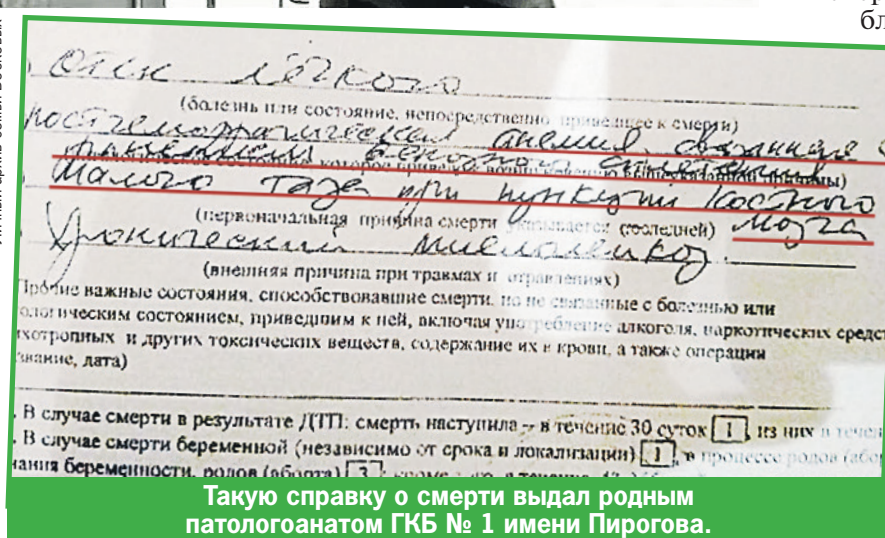 отек лёгкого
(болезнь или состояние, непосредственно приведшее к смерти)
постгеморрагическая анемия, связанная с
ранением венозного сплетения
малого таза при пункции костного
(первоначальная причина смерти указывается последней) мозга
Хронический миелолейкоз.
(внешняя причина при травмах и отравлениях)
Прочие важные состояния, способствовавшие смерти, но не связанные с болезнью или
ологическим состоянием, приведшим к ней, включая употребление алкоголя, наркотических средст
ихотропных и других токсических веществ, содержание их в крови, а также операция
звание, дата)
. В случае смерти в результате ДТП: смерть наступила – в течение 30 суток 1, из них в течен
. В случае смерти беременной (независимо от срока и локализации) 1, в процессе родов (абор
чания беременности, родов (аборта) 3
Такую справку о смерти выдал родным
патологоанатом ГКБ № 1 имени Пирогова.